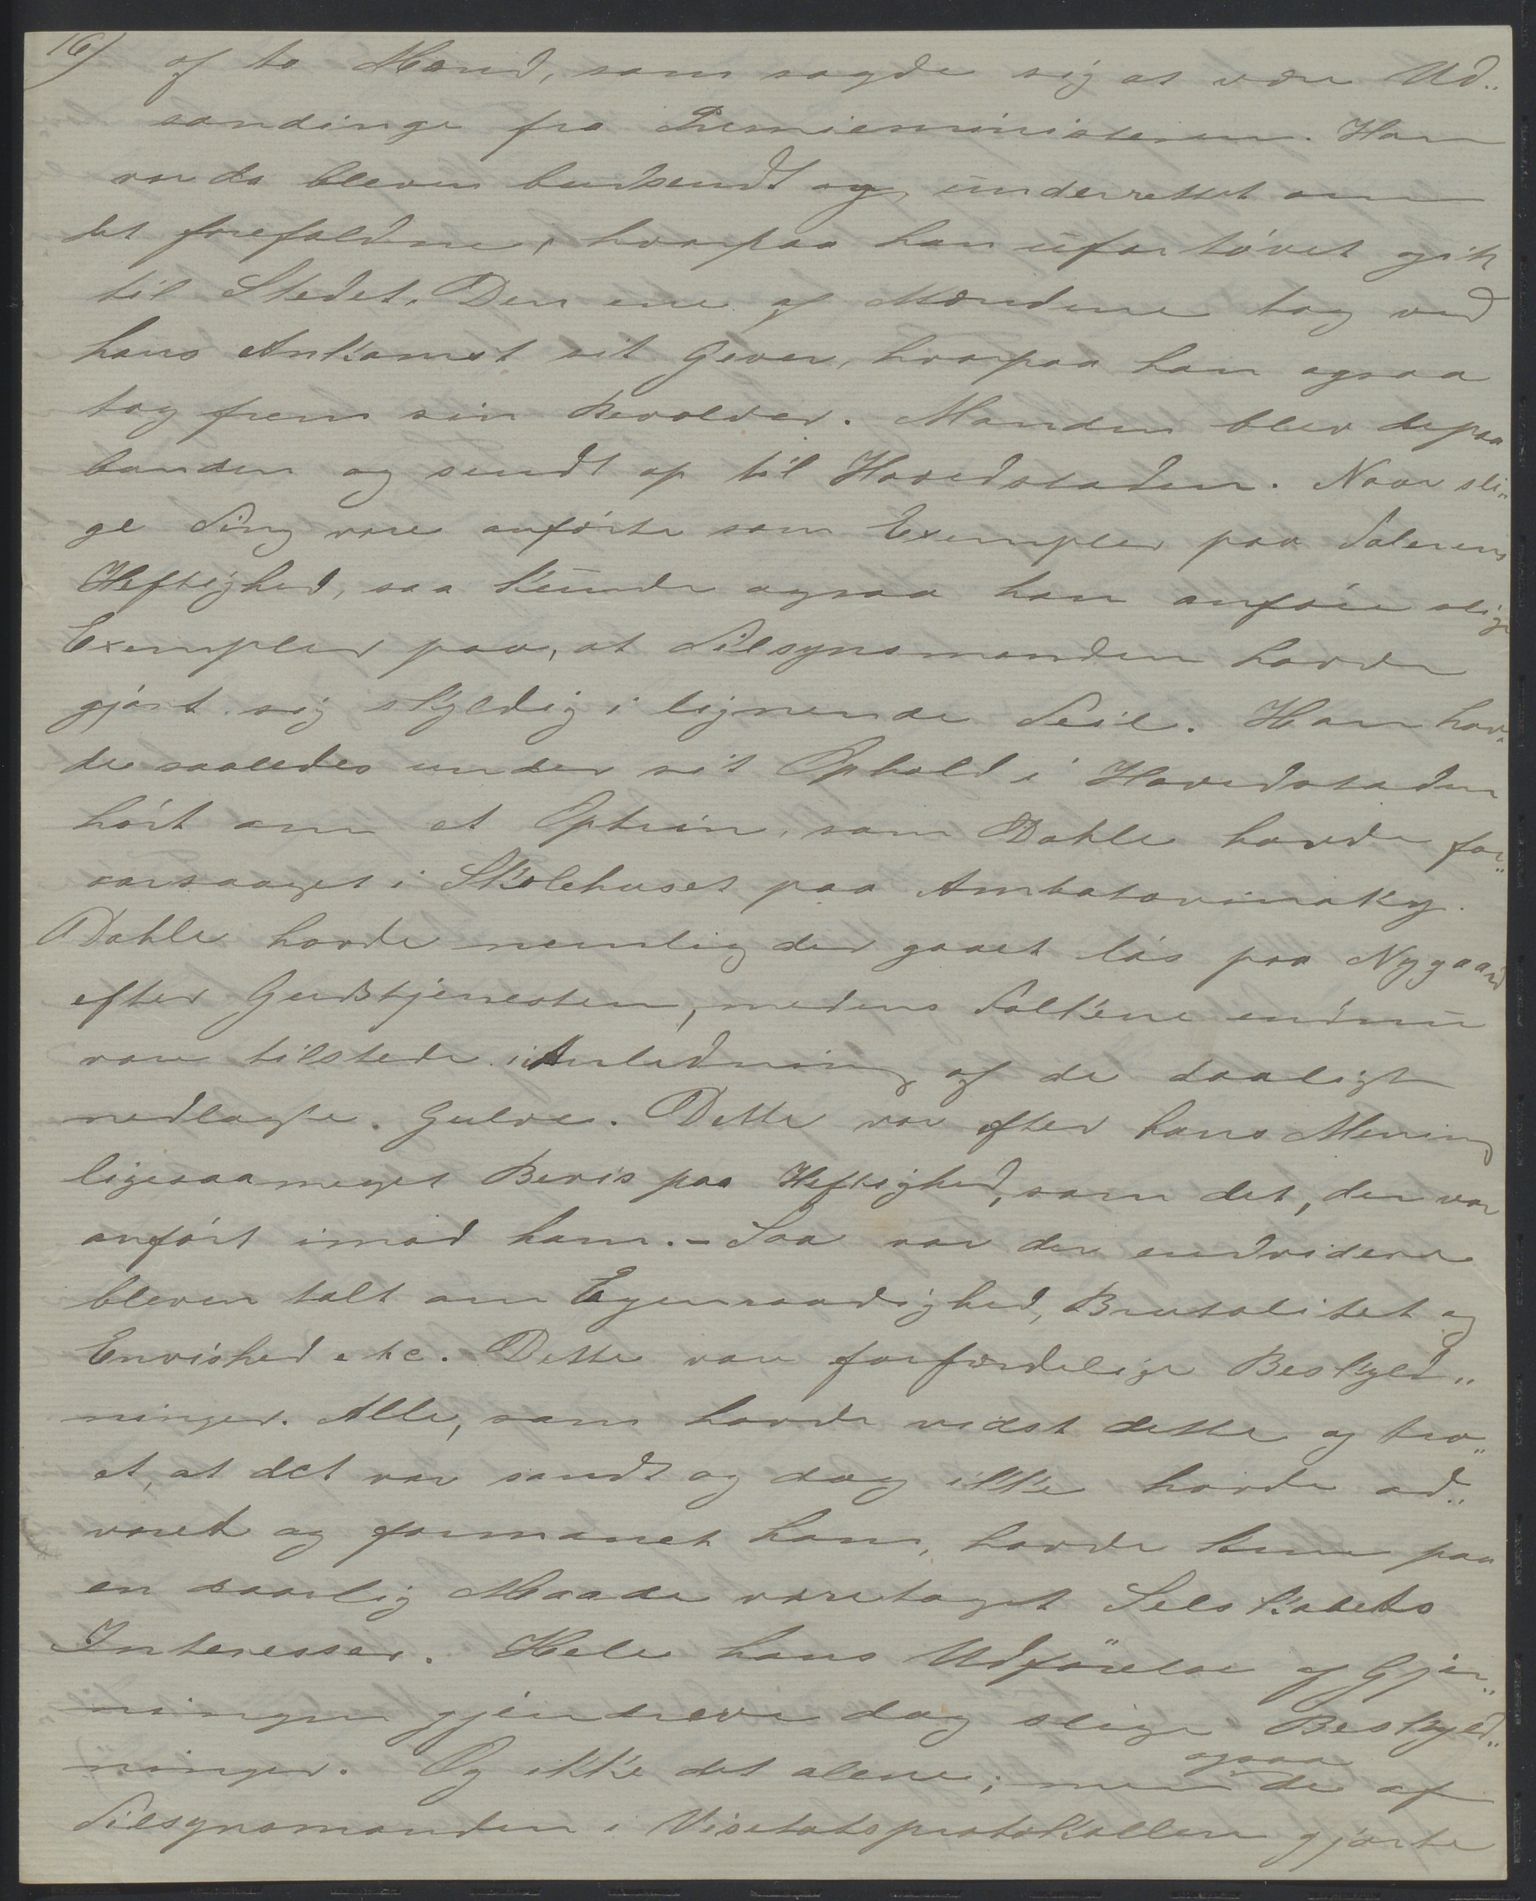 16)
af to Mænd, som sagde sig at være Ud„
sendinge fra Premierministeren. Han
var da bleven budsendt og underrettet om
det forefaldne, hvorpaa han ufortøvet gik
til Stedet. Den ene af Mændene tog ved
hans Ankomst sit Gevær, hvorpaa han ogsaa
tog frem sin Revolver. Manden blev derpaa
bunden og sendt op til Hovedstaden. Naar sli„
ge Ting vare anførte som Exempler paa Talerens
Heftighed, saa kunde ogsaa han anføre slige
Exempler paa, at Tilsynsmanden havde
gjort sig skyldig i lignende Feil. Han hav„
de saaledes under sit Ophold i Hovedstaden
hørt om et Optrin, som Dahle havde for„
aarsaaget i Skolehuset paa Ambatovinaky.
Dahle havde nemlig der gaaet løs paa Nygaard
efter Gudstjenesten, medens Folkene endnu
vare tilstede i Anledning af de daaligt
nedlagte Gulve. Dette var efter hans Mening
ligesaameget Bevis paa Heftighed, som det, der var
anført imod ham. – Saa var der endvidere
bleven talt om Egenraadighed, Brutalitet og
Envished etc. Dette var forfærdelige Beskyld„
ninger. Alle, som havde vidst dette og tro„
et, at det var sandt og dog ikke havde ad„
varet og formanet ham, havde kun paa
en daarlig Maade varetaget Selskabets
Interesser. Hele hans Udførelse af Gjer„
ningen gjendrev dog slige Beskyld„
ninger. Og ikke det alene; men ogsaa de af
Tilsynsmanden i Visitatsprotokollen gjorte